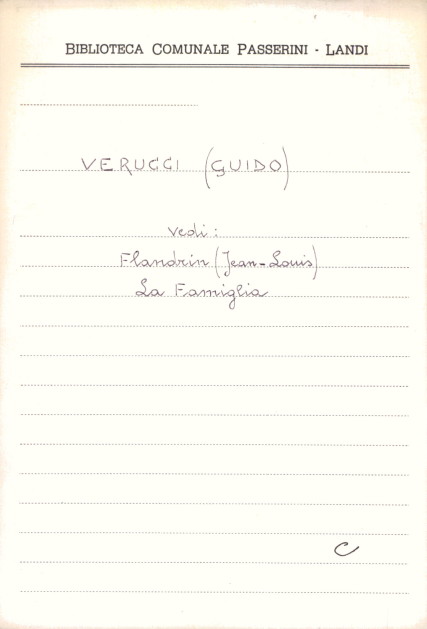 BIBLIOTECA COMUNALE PASSERINI - LANDI
VERUCCI (GUIDO)
Vedi:
Flandrin (Jean-Louis)
La Famiglia
C